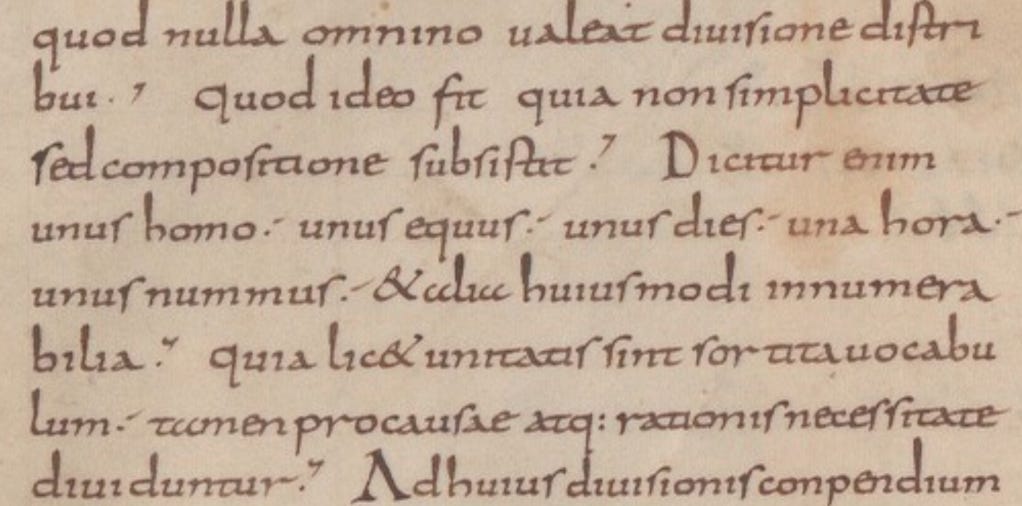 quod nulla omnino ualeat diuisione distri
bui. Quod ideo fit quia non simplicitate
sed compositione subsistit. Dicitur enim
unus homo. unus equus. unus dies. una hora.
unus nummus. & alia huiusmodi innumera
bilia. quia lic& unitatis sint sortita uocabu
lum. tamen pro causae atq: rationis necessitate
diuiduntur. Ad huius diuisionis conpendium